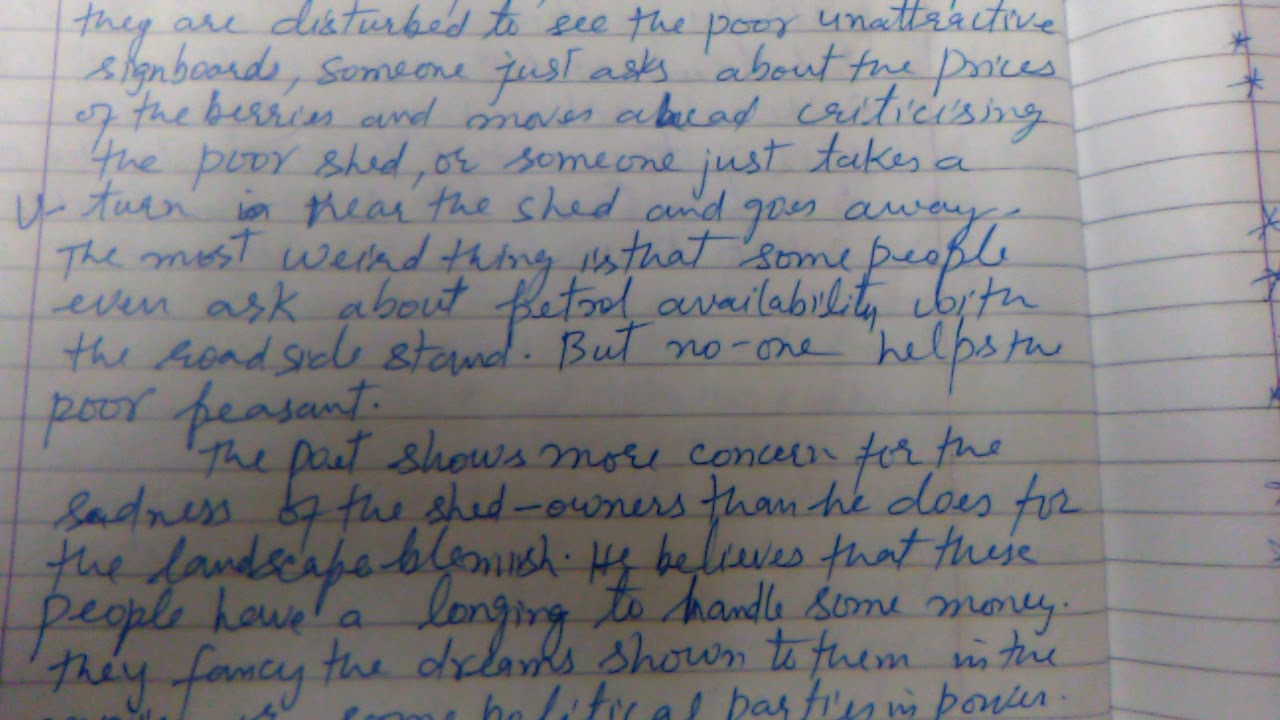 they are disturbed to see the poor unattractive
signboards, someone just asks about the prices
of the berries and moves ahead criticising
the poor shed, or someone just takes a
turn in near the shed and goes away.
The most weird thing is that some people
even ask about petrol availability with
the roadside stand. But no-one helps the
poor peasant.
The poet shows more concern for the
sadness of the shed-owners than he does for
the landscape blemish. He believes that these
people have a longing to handle some money.
they fancy the dreams shown to them in the
some political parties in power.